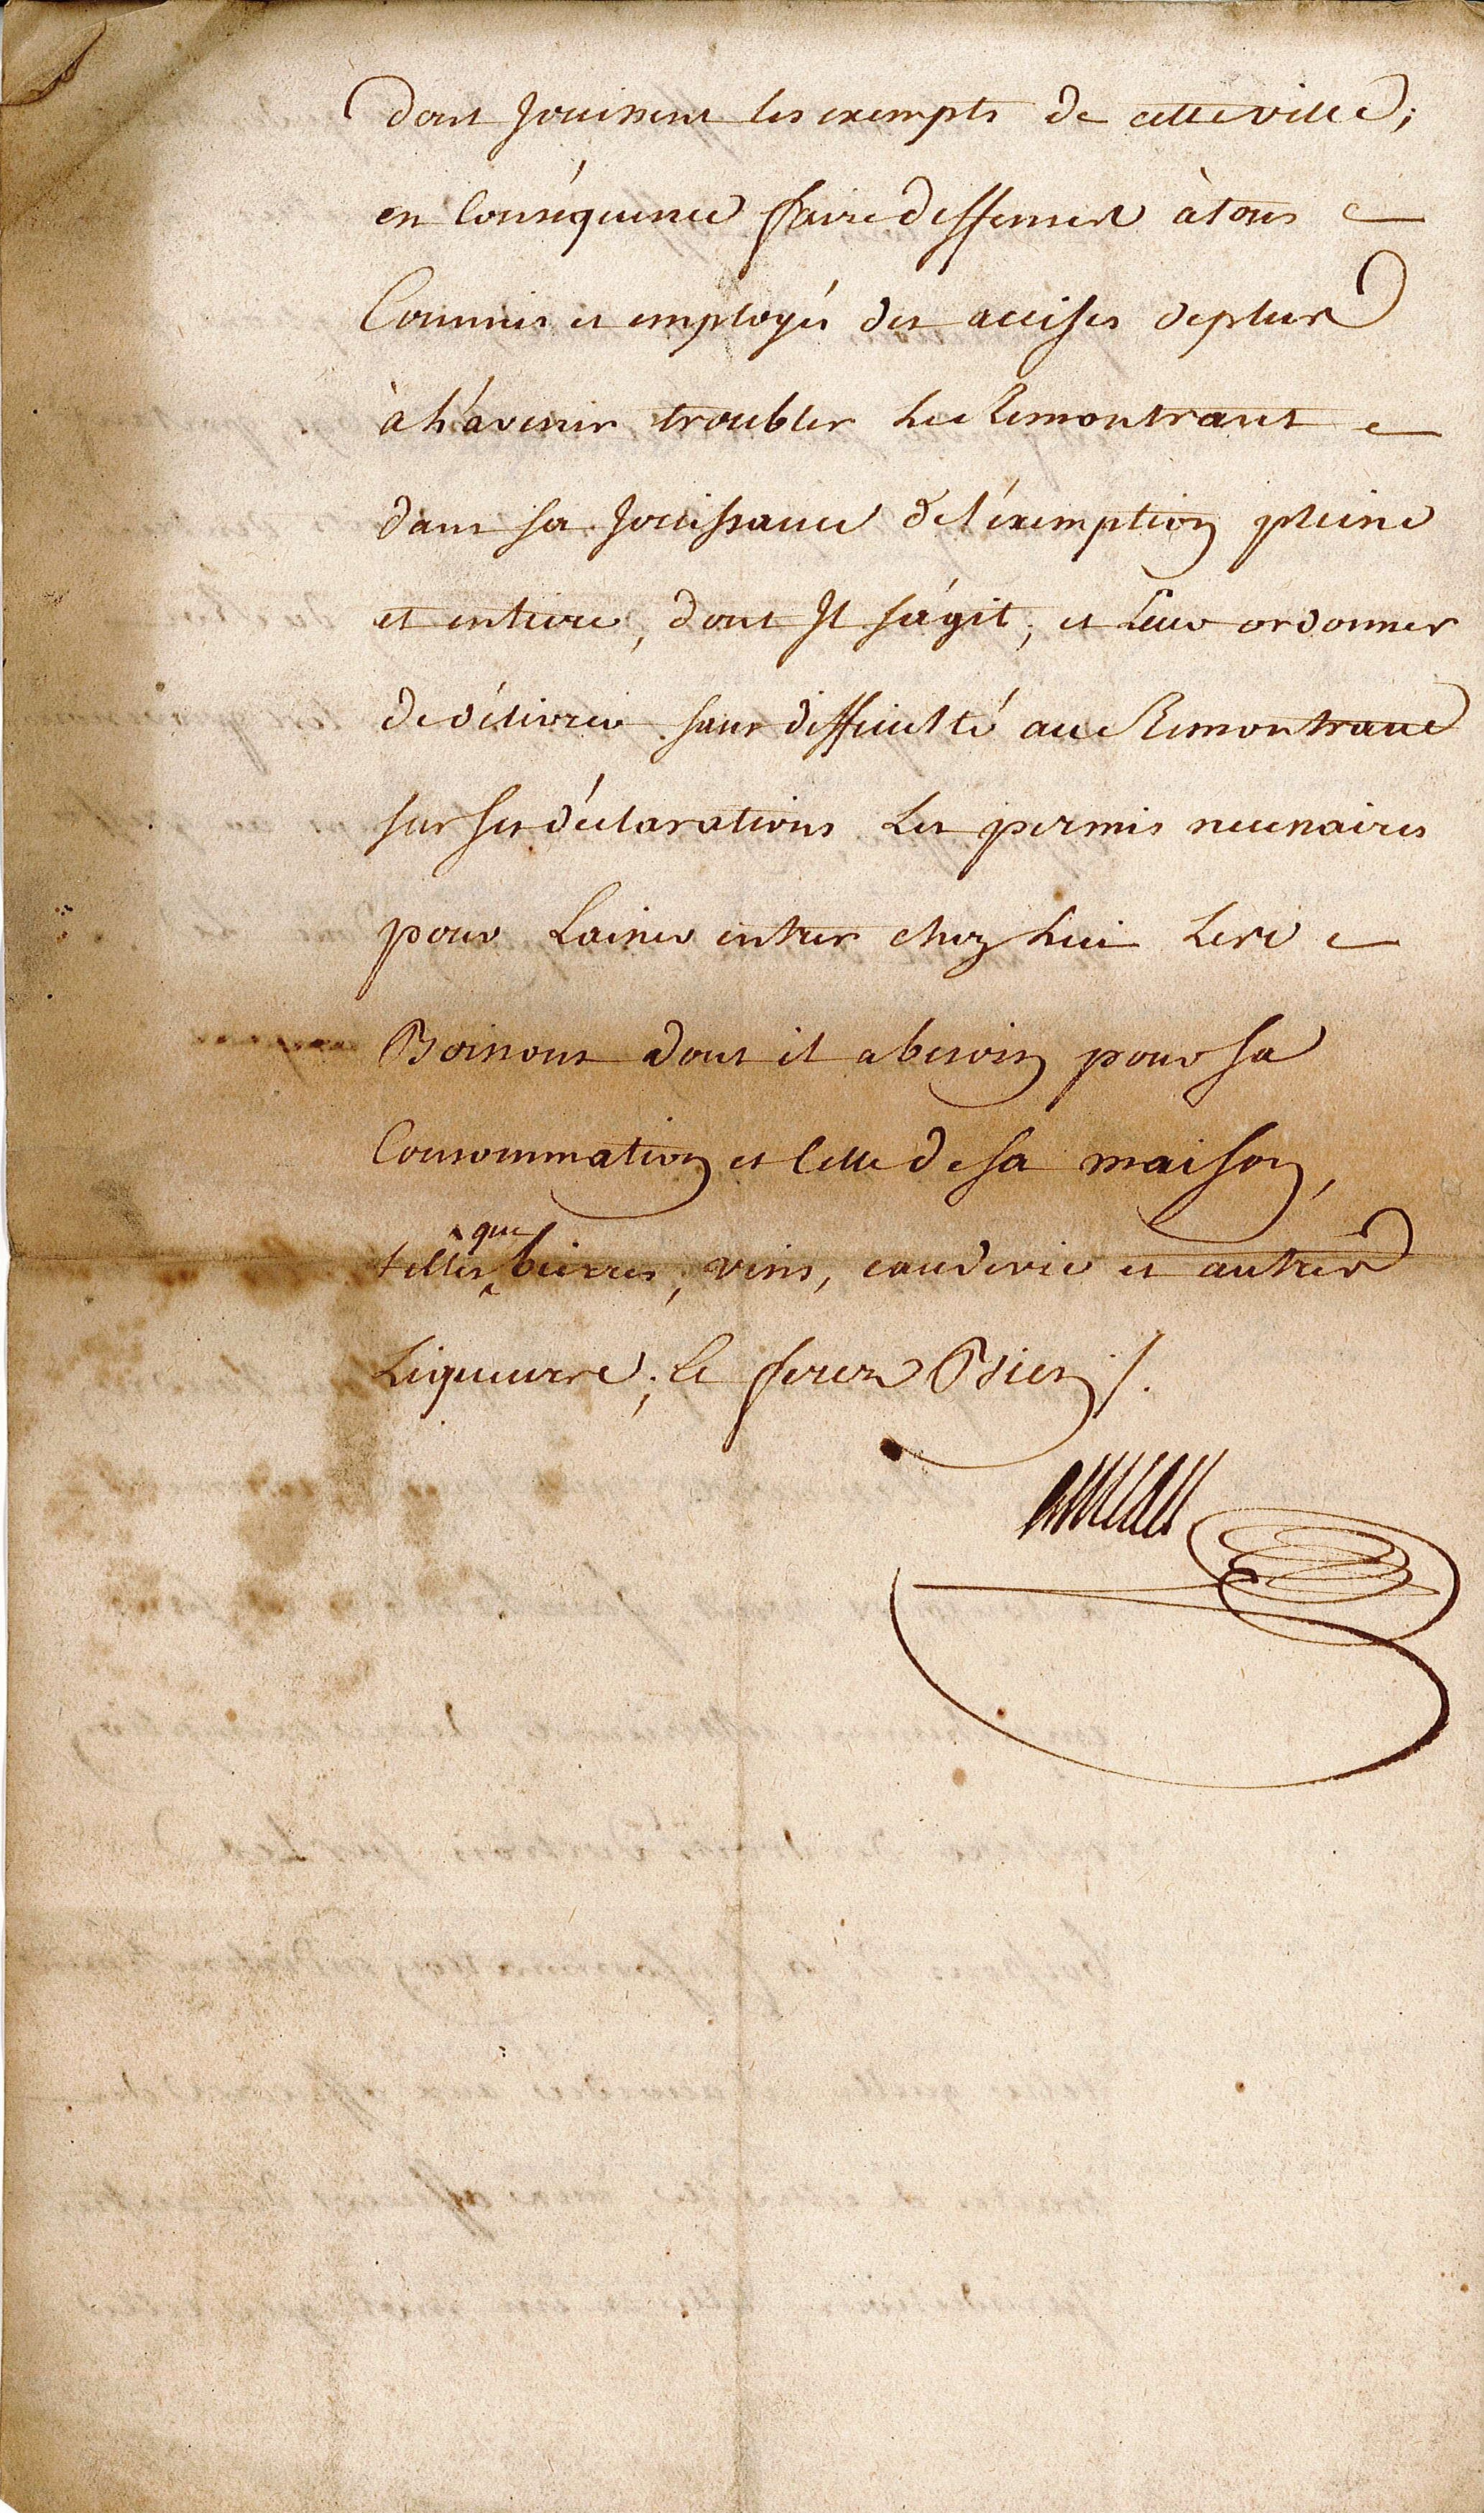 dont Jouissent les exempts de cette ville;
en Conséquence faire deffenses à tous
Commis et employés des accises de plus
à L'avenir troubler Le Remontrant
dans sa Jouissance de l'éxemption pleine
et entiere, dont Il s'ágit; et Leur ordonner
de délivrer sans difficulté au Remontrant
sur ses déclarations Les permis necessaires
pour Laisser entrer chez Lui Les
Boissons dont il a besoin pour sa
Consommation et Celle de sa maison,
telles que bierres, vins, eaudevie et autres
Liqueurs; Ce ferez Bien ./.